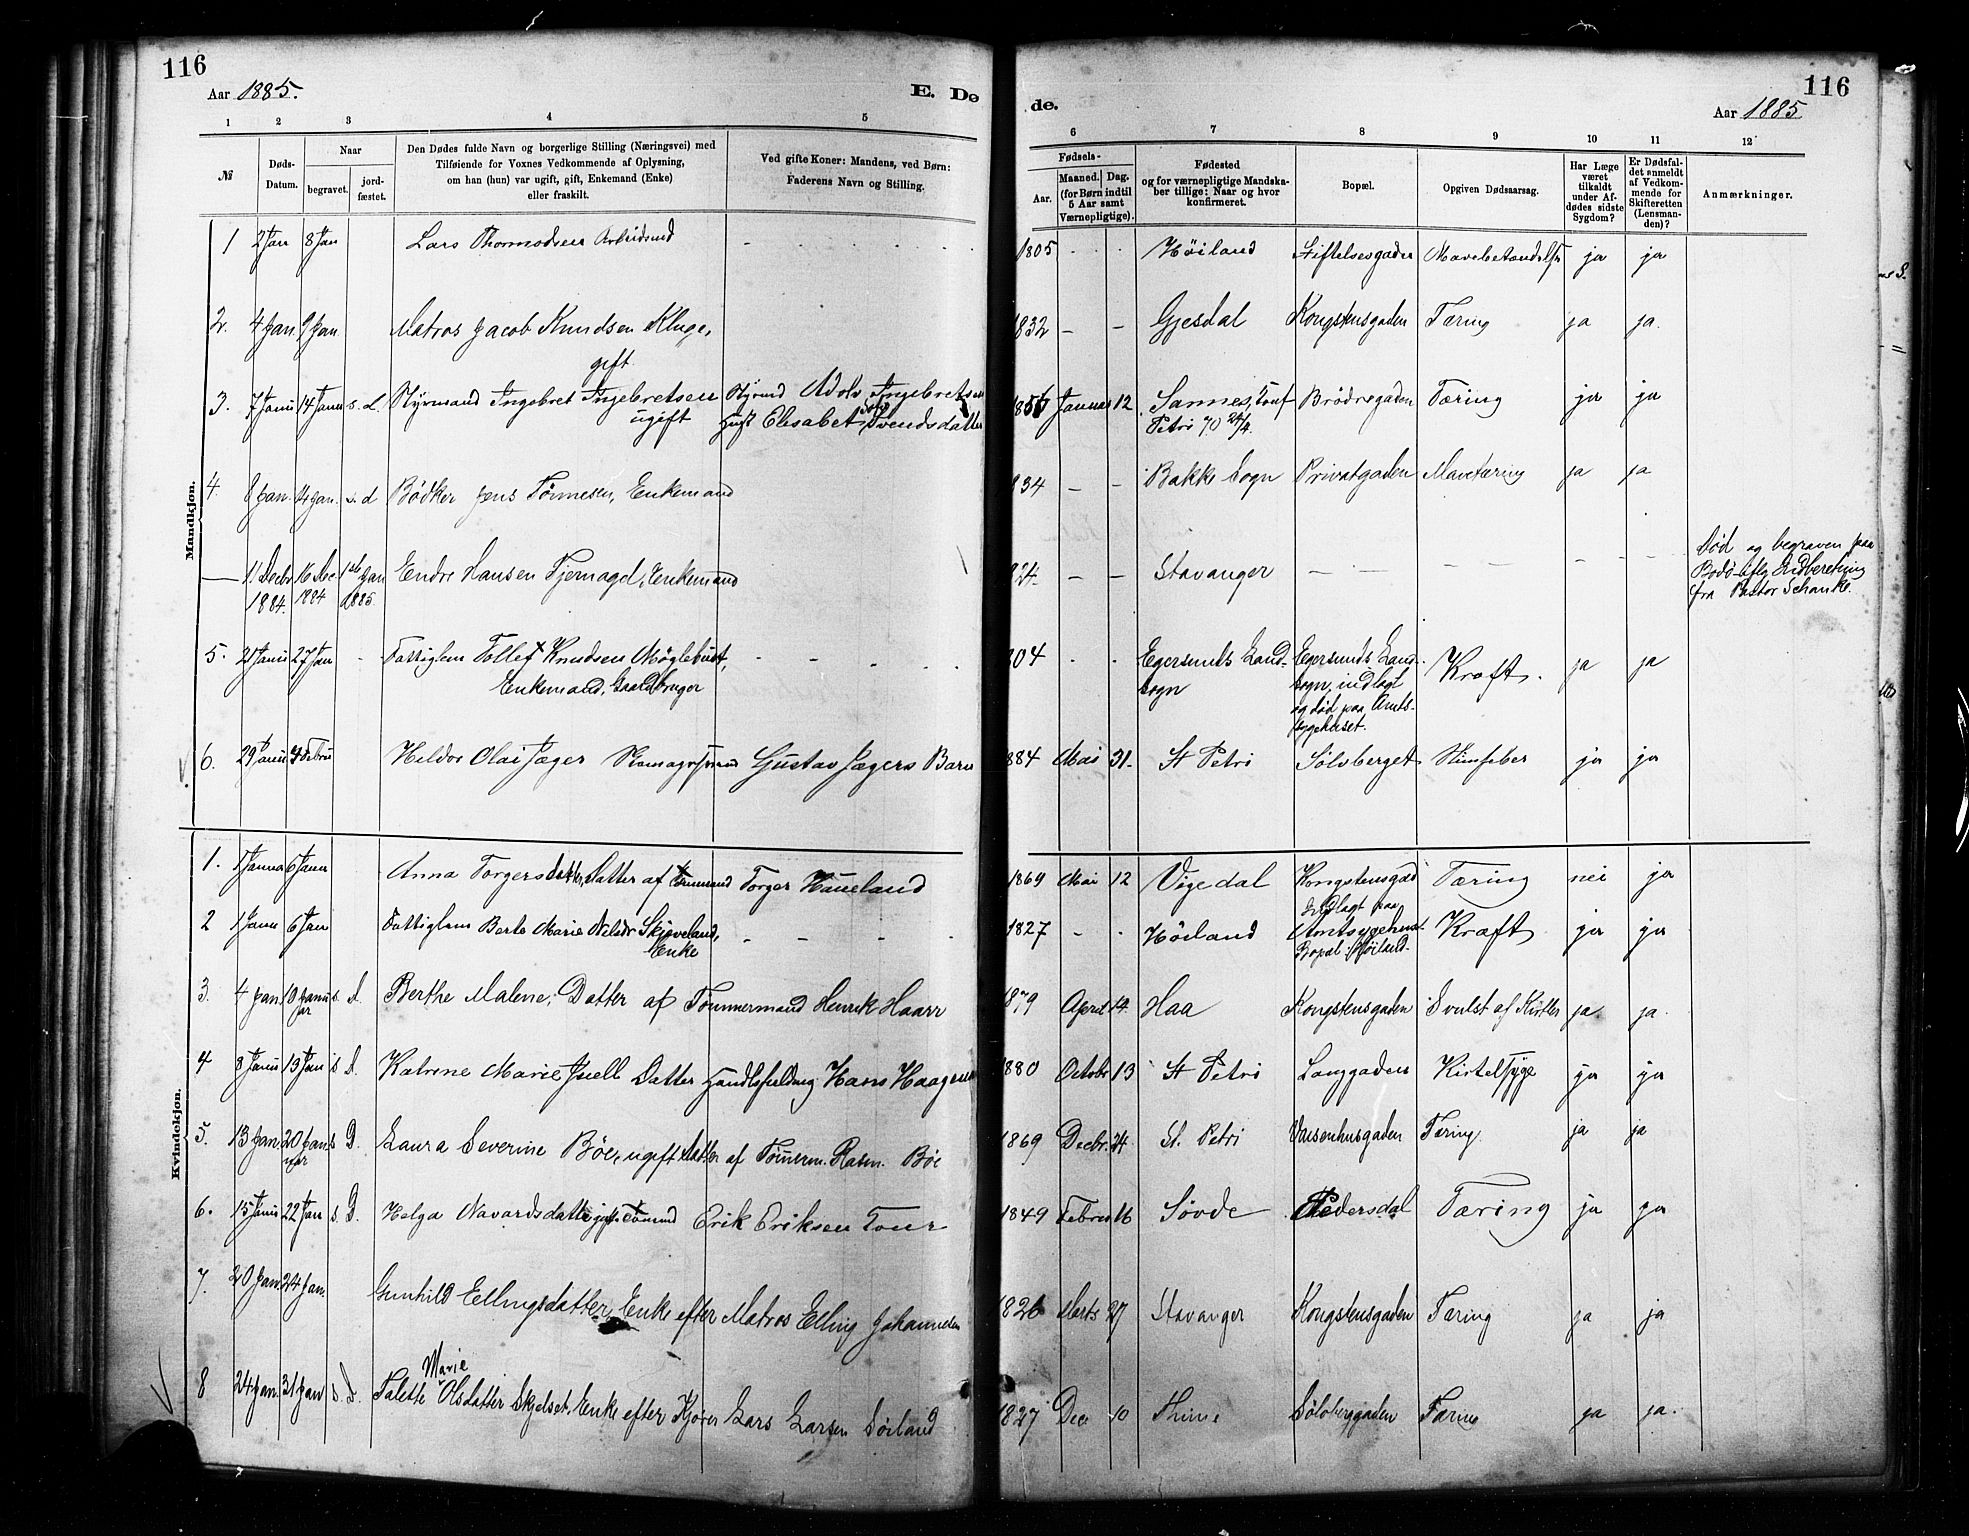 116
116
Aar 1885.
E. De
de.
Aar 1885
1 2 3 4 5 6 7 8 9 10 11 12
№
Døds-
Datum.
Naar
begravet.
jord-
fæstet.
Den Dødes fulde Navn og borgerlige Stilling (Næringsvei) med
Tilføiende for Voxnes Vedkommende af Oplysning,
om han (hun) var ugift, gift, Enkemand (Enke)
eller fraskilt.
Ved gifte Koner: Mandens, ved Børn:
Faderens Navn og Stilling.
Fødsels-
Aar.
Maaned. Dag.
(for Børn indtil
5 Aar samt
Værnepligtige).
Fødested
og for værnepligtige Mandska-
ber tillige: Naar og hvor
konfirmeret.
Bopæl.
Opgiven Dødsaarsag.
Har Læge
været
tilkaldt
under Af-
dødes sidste
Sygdom?
Er Dødsfal-
det anmeldt
af Vedkom-
mende for
Skifteretten
(Lensman-
den)?
Anmærkninger.
Mandkjøn.
1 2 Jan 8 Jan Lars Thormodsen Arbeidsmd - 1805 - - Höiland Stiftelsesgaden Mavebetændelse ja ja
2. 4 Jan. 9 Jan. Matros Jacob Knudsen Kluge, 1832 – – Gjesdal Kongstensgaden Tæring ja ja.
gift
3. 7 Janu 14 Janu s. d. Styrmand Ingebret Ingebretsen Styrmd Adolv Ingebretsen 1856 Januar 12 Sannes, Conf Brödregaden Tæring ja ja
ugift Elisabet Svendsdatter Petri 70 24/4.
4. 8 Jan. 14 Jan. s. d Bödker Jens Tönnesen, Enkemand 834 – – Bakke Sogn Privatgaden Mavetæring ja ja
— 11 Decbr 16 Dec 1ste Jan Endre Hansen Fjernagel, Enkemand 824 – – Stavanger – – – – –
1884. 1884 1885.
Död og begraven paa
Bodö iflg. Indberetning
fra Pastor Schanke.
5. 21 Janu 27 Jan - Fattiglem Tollef Knudsen Möglebust, 804 - - Egersunds Land- Egersunds Land- Kræft. ja ja
Enkemand, Gaardbruger sogn sogn, indlagt
og död paa Amts-
sygehuset.
6. 29 Janu 4 Febru Heldor Olai Jæger Gustav Jægers Barn 884 Mai 31. St Petri Sölvberget ja ja
Kvindekjøn.
1. 1 Janua 6 Janu Anna Torgersdatter, Datter af Tömmermd Torger Haueland 1869 Mai 12 Vigedal Kongstensgad Tæring nei ja
2 1 Janu 6 Jan Fattiglem Berte Marie Nelsdr Skjeveland, - 1827 - - Höiland Indlagt paa Kræft ja ja
Enke Amtsygehuset.
Bopæl: Höiland.
3. 4 Jan 10 Janu s. d. Berthe Malene, Datter af Tömmermand Henrik Haarr 1879 April 14. Haa Kongstensgaden Svulst af Kirtler ja. ja.
ar
4 8 Janu 13 Jan s. d. Katrine Marie Juell Datter Hans Haagensen 1880 Octobr 13 St Petri Langgaden Kirtelsyge ja ja
5. 13 Jan. 20 Jan s. d. Laura Severine Böe, ugift Datter af Tömerm. Rasm. Böe 1869 Decbr. 24. St. Petri Vaisenhusgaden Tæring ja ja
uar
6. 15 Janu 22 Jan s. d. Helga Navardsdatter gift Tömmd Erik Eriksen Tour 1849 Febru 16 Sövde Pedersdal Tæring ja ja
7. 20 Jan. 24 Jan. Gunhild Ellingsdatter, Enke efter Matros Elling Johannesen 1826 Marts 27 Stavanger Kongstensgaden Tæring ja ja
Marie
8 24 Jan. 31 Jan s. d. Talette Olsdatter Skjelset. Enke efter Kjörer Lars Larsen Söiland 1827 Dec 10 Thime Sölvberggaden Tæring ja ja.